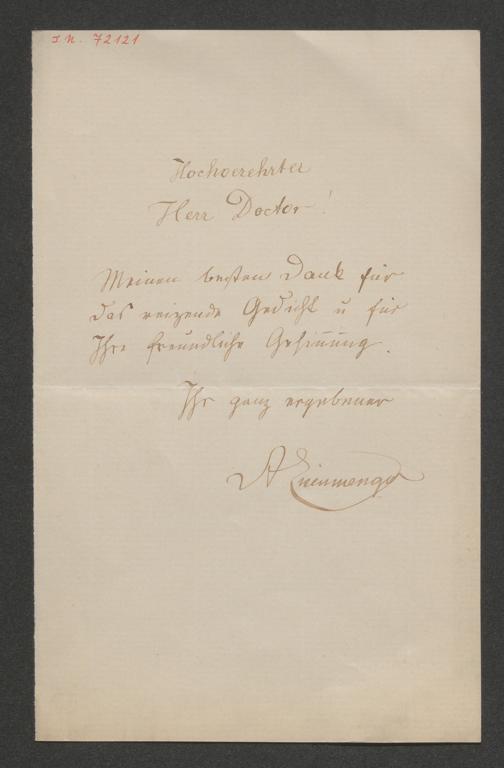 I.N. 72121
Hochverehrter
Herr Doctor!
Meinen besten Dank für
das reizende Gedicht u für
Ihre freundliche Gesinnung.
Ihr ganz ergebener
A Eisenmenger